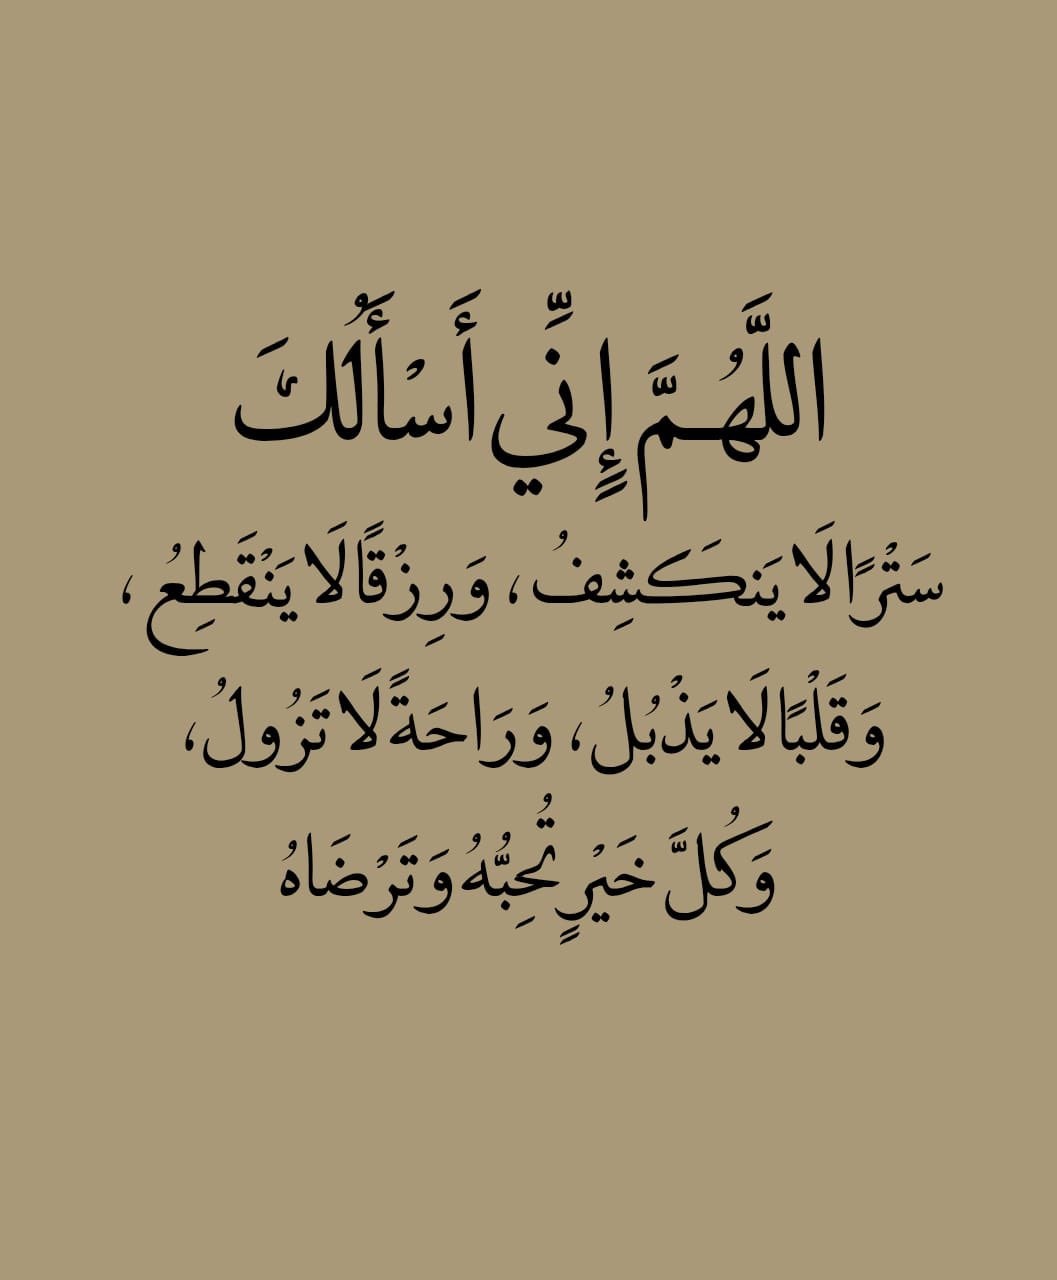 اللَّهُمَّ إِنٍِّي أَسْأَلُكَ
سَتْرًا لَا يَنكَشِفُ ، وَرِزْقًا لَا يَنْقَطِعُ ،
وَقَلْبًا لَا يَذْبُلُ ، وَرَاحَةً لَا تَزُولُ ،
وَكُلَّ خَيْرٍ تُحِبُّهُ وَتَرْضَاهُ